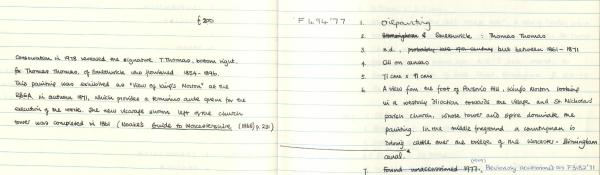 £200
Conservation in 1978 revealed the signature T. Thomas, bottom right.
for Thomas Thomas, of Smethwick who flourished 1854 - 1896.
This painting was exhibited as "View of King's Norton" at the
RBSA in autumn 1871, which provides a terminus ante quem for the
execution of the work. The new vicarage shown left of the church
tower was completed in 1861 (Noake's Guide to Worcestershire (1868) p. 281)
F494'77
1. Oilpainting
2. Birmingham & Smethwick : Thomas Thomas
3. n.d., probably late 19th century but between 1861 - 1871
4. Oil on canvas
5. 71 cms x 91 cms
6. A view from the foot of Parsons Hill, Kings Norton looking
in a westerly direction towards the village and St Nicholas'
parish church, whose tower and spire dominate the
painting. In the middle foreground a countryman is
driving cattle over the bridge of the Worcester - Birmingham
canal.
7. Found unaccessioned 1977. Previously accessioned as F3182'71